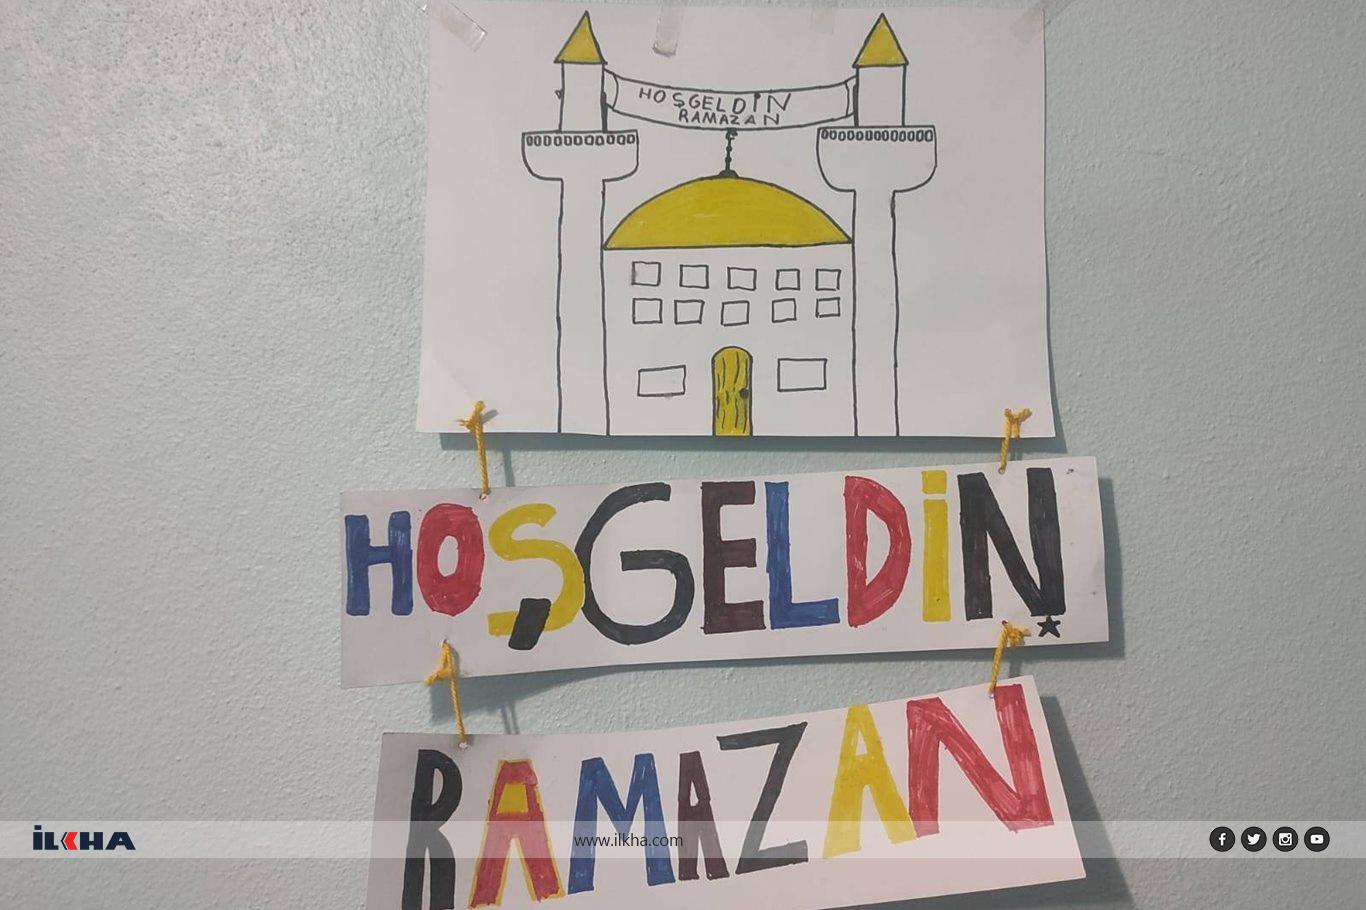 HOŞGELDİN
RAMAZAN
HOŞGELDİN
RAMAZAN
İLKHA
www.ilkha.com